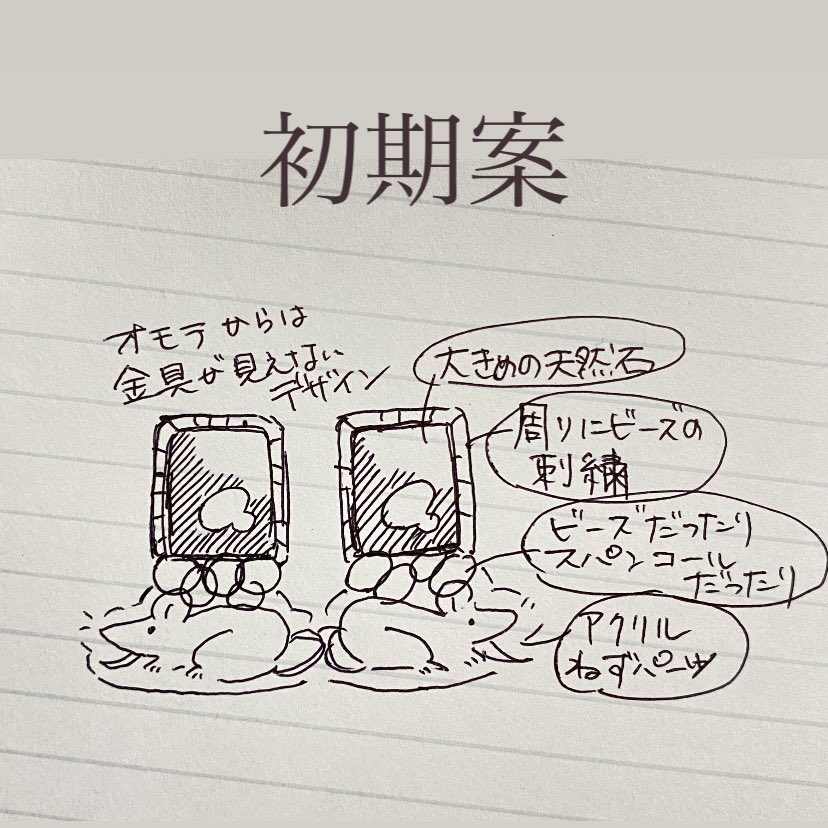 初期案
オモテからは
金具が見えない
デザイン
大きめの天然石
周りにビーズの
刺繍
ビーズだったり
スパンコール
だったり
アクリル
ねずパーツ